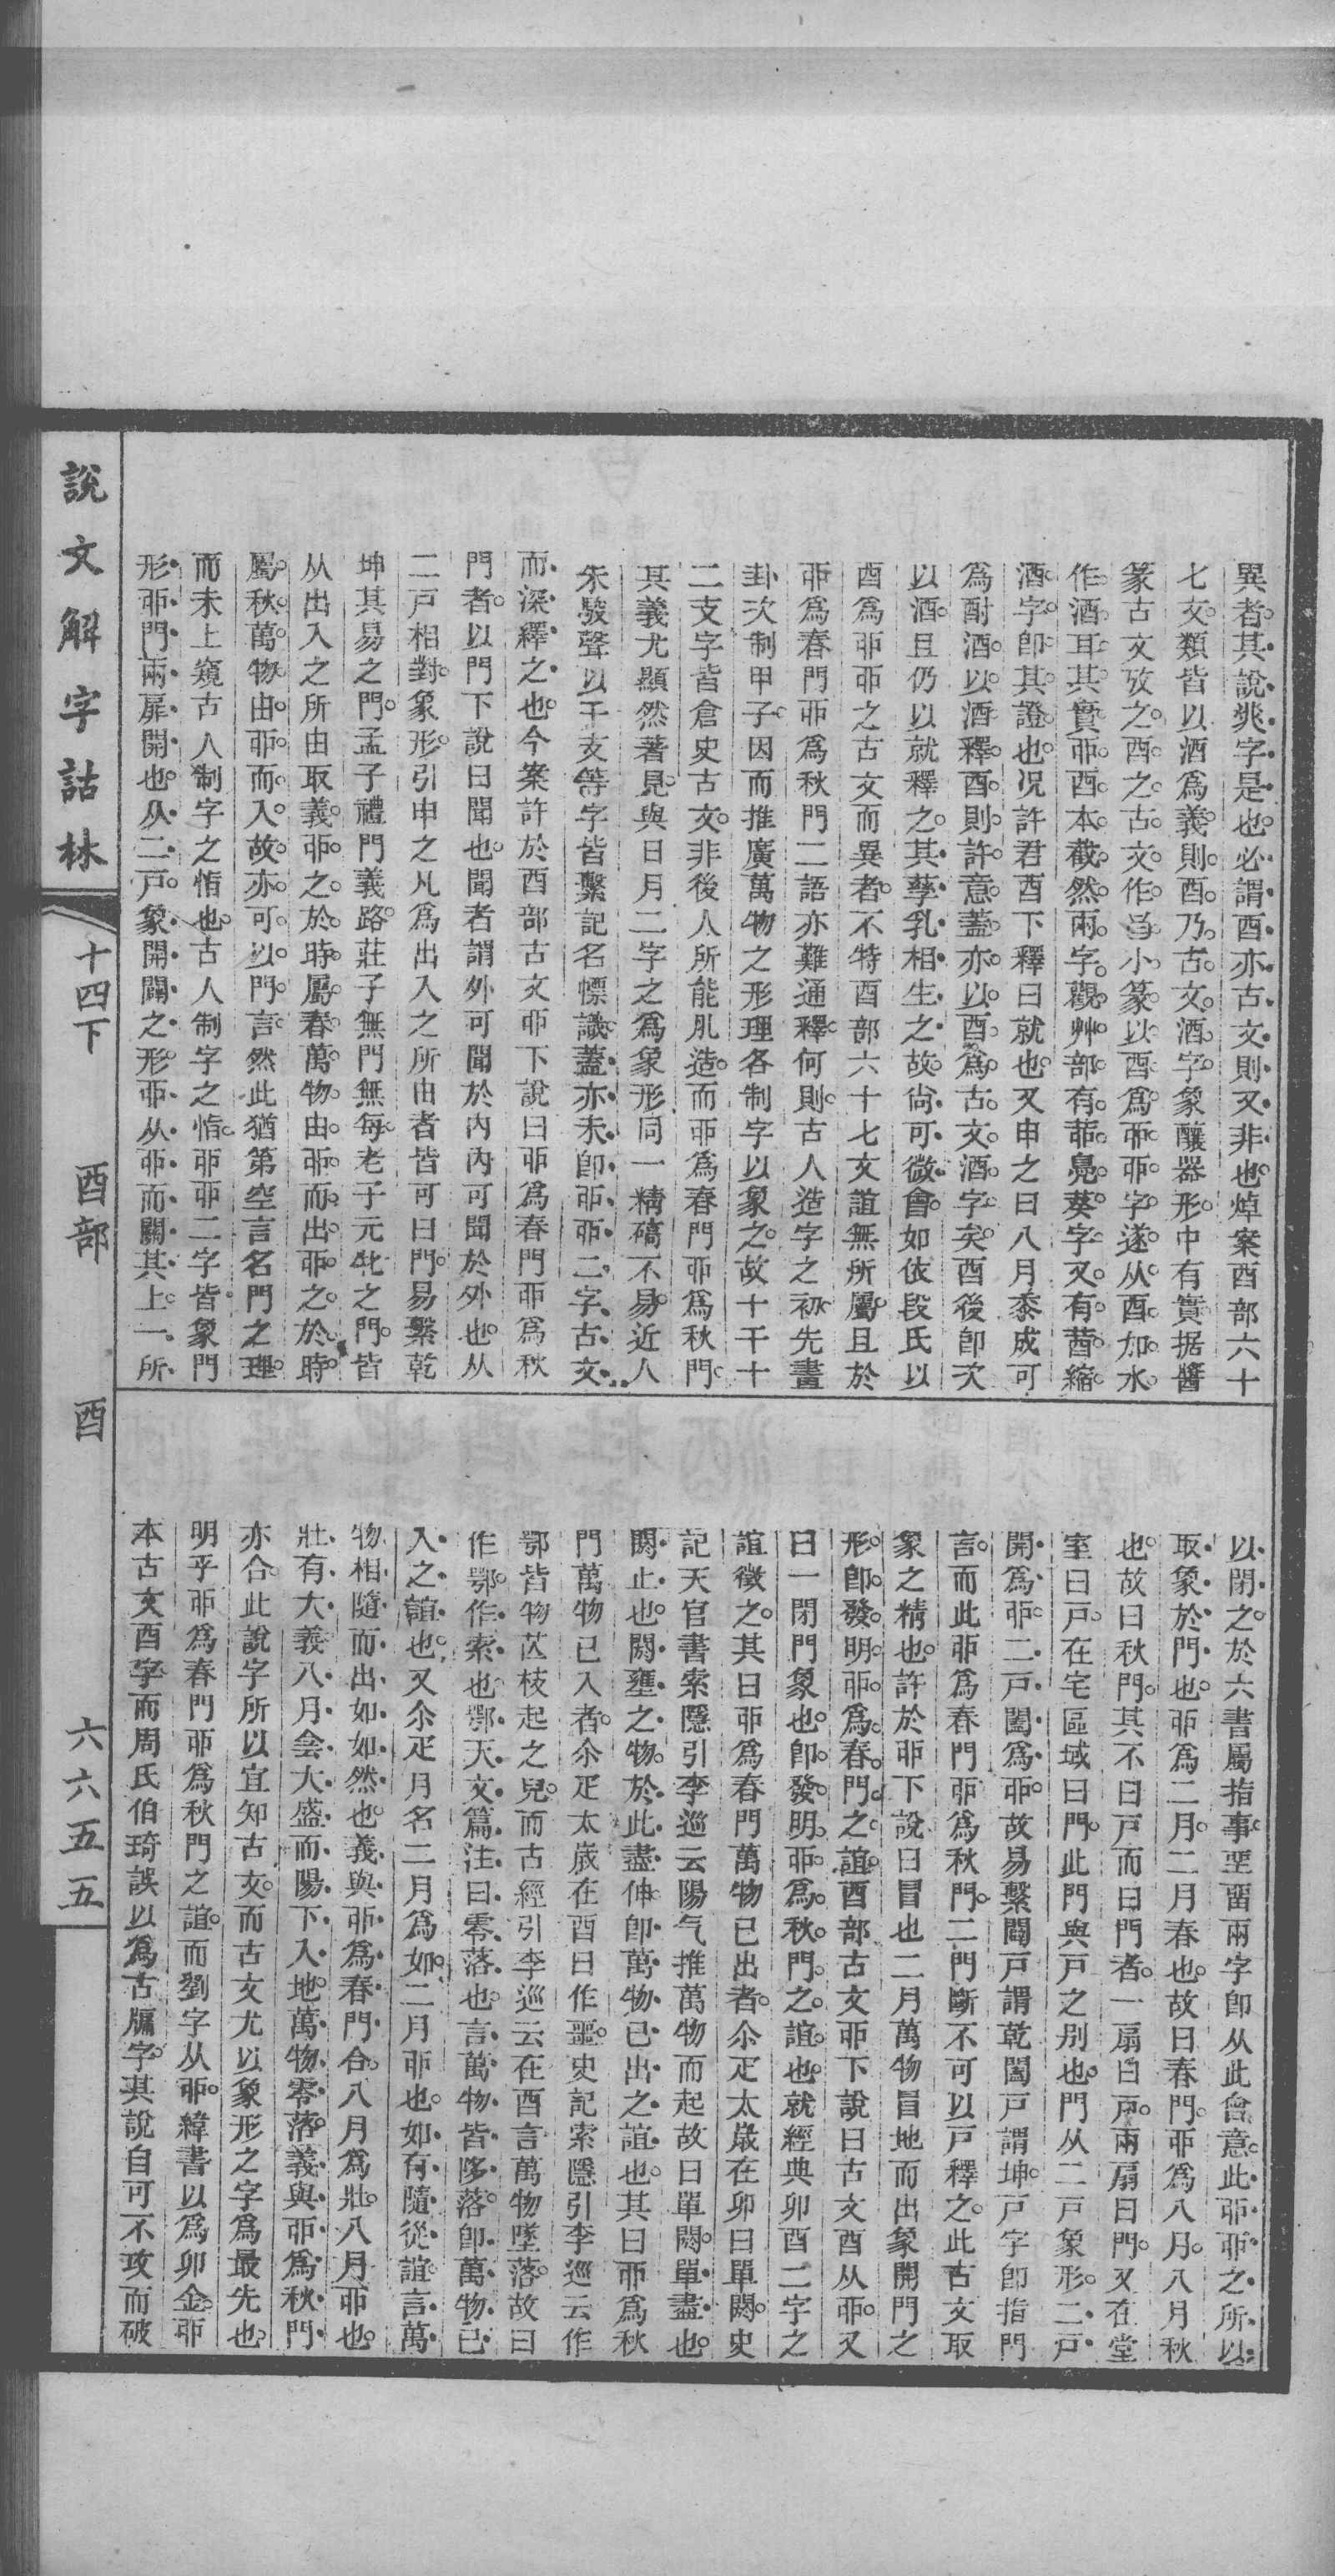 異者其說㷖字是也必謂酉亦古文則又非也焯案酉部六十
七文類皆以酒爲義則酉乃古文酒字象釀器形中有實据醬
篆古文攷之酉之古文作𠙹小篆以酉爲丣丣字遂从酉加水
作酒耳其實丣酉本截然兩字觀艸部有茆鳧葵字又有莤縮
酒字卽其證也况許君酉下釋曰就也又申之曰八月黍成可
爲酎酒以酒釋酉則許意蓋亦以酉爲古文酒字矣酉後卽次
以酒且仍以就釋之其孳乳相生之故尙可微會如依段氏以
酉爲丣丣之古文而異者不特酉部六十七文誼無所屬且於
丣爲春門丣爲秋門二語亦難通釋何則古人造字之初先畫
卦次制甲子因而推廣萬物之形理各制字以象之故十干十
二支字皆倉史古文非後人所能肊造而丣爲春門丣爲秋門
其義尤顯然著見與日月二字之爲象形同一精碻不易近人
朱駿聲以干支等字皆繫記名幖識蓋亦未卽丣丣二字古文
而深繹之也今案許於酉部古文丣下說曰丣爲春門丣爲秋
門者以門下說曰聞也聞者謂外可聞於內內可聞於外也从
二戸相對象形引申之凡爲出入之所由者皆可曰門易繫乾
坤其易之門孟子禮門義路莊子無門無每老子元牝之門皆
从出入之所由取義丣之於時屬春萬物由丣而出丣之於時
屬秋萬物由丣而入故亦可以門言然此猶第空言名門之理
而未上窺古人制字之恉也古人制字之恉丣丣二字皆象門
形丣門兩扉開也从二戸象開闢之形丣从丣而關其上一所
以閉之於六書屬指事坙畱兩字卽从此會意此丣丣之所以
取象於門也丣爲二月二月春也故曰春門丣爲八月八月秋
也故曰秋門其不曰戸而曰門者一扇曰戸兩扇曰門又在堂
室曰戸在宅區域曰門此門與戸之別也門从二戸象形二戸
開爲丣二戸闔爲丣故易繫闢戸謂乾闔戸謂坤戸字卽指門
言而此丣爲春門丣爲秋門二門斷不可以戸釋之此古文取
象之精也許於丣下說曰冒也二月萬物冒地而出象開門之
形卽發明丣爲春門之誼酉部古文丣下說曰古文酉从丣又
曰一閉門象也卽發明丣爲秋門之誼也就經典卯酉二字之
誼徵之其曰丣爲春門萬物已出者尒疋太歲在卯曰單閼史
記天官書索隱引李巡云陽气推萬物而起故曰單閼單盡也
閼止也閼壅之物於此盡伸卽萬物已出之誼也其曰丣爲秋
門萬物已入者尒疋太歲在酉曰作噩史記索隱引李巡云作
鄂皆物芒枝起之皃而古經引李巡云在酉言萬物墜落故曰
作鄂作索也鄂天文篇注曰零落也言萬物皆陊落卽萬物已
入之誼也又尒疋月名二月爲如二月丣也如有隨從誼言萬
物相隨而出如如然也義與丣爲春門合八月爲壯八月丣也
壯有大義八月侌大盛而陽下入地萬物零落義與丣爲秋門
亦合此說字所以宜知古文而古文尤以象形之字爲最先也
明乎丣爲春門丣爲秋門之誼而劉字从丣緯書以爲卯金丣
本古文酉字而周氏伯琦誤以爲古牖字其說自可不攻而破
說文解字詁林
十四下
酉部
酉
六六五五